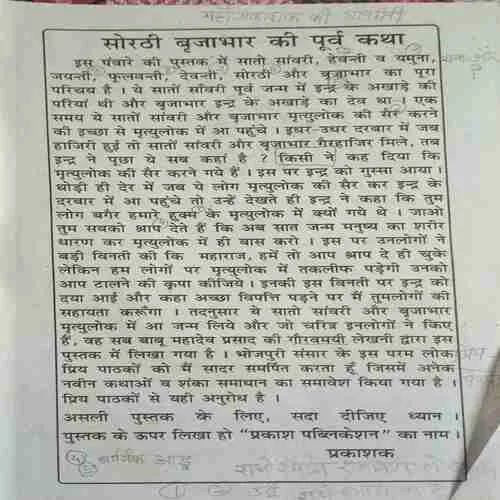 सोरठी बृजाभार की पूर्व कथा
इस पंवारे की पुस्तक में सातो सांवरी, हेवन्ती व यमुना,
जयन्ती, फूलवन्ती, देवन्ती, सोरठी और बृजाभार का पूरा
परिचय है । ये सातों सांवरी पूर्व जन्म में इन्द्र के अखाड़े की
परियां थी और बृजाभार इन्द्र के अखाड़े का देव था । एक
समय ये सातों सांवरी और बृजाभार मृत्युलोक की सैर करने
की इच्छा से मृत्युलोक में आ पहुंचे । इधर-उधर दरबार में जब
हाजिरी हुई तो सातों सांवरी और बृजाभार गैरहाजिर मिले, तब
इन्द्र ने पूछा ये सब कहां है ? किसी ने कह दिया कि
मृत्युलोक की सैर करने गये हैं । इस पर इन्द्र को गुस्सा आया ।
थोड़ी ही देर में जब ये लोग मृत्युलोक की सैर कर इन्द्र के
दरबार में आ पहुंचे तो उन्हें देखते ही इन्द्र ने कहा कि तुम
लोग बगैर हमारे हुक्म के मृत्युलोक में क्यों गये थे । जाओ
तुम सबको श्राप देते हैं कि अब सात जन्म मनुष्य का शरीर
धारण कर मृत्युलोक में ही बास करो । इस पर उनलोगों ने
बड़ी विनती की कि महाराज, हमें तो आप श्राप दे ही चुके
लेकिन हम लोगों पर मृत्युलोक में तकलीफ पड़ेगी उनको
आप टालने की कृपा कीजिये । इनकी इस विनती पर इन्द्र को
दया आई और कहा अच्छा विपत्ति पड़ने पर मैं तुमलोगों की
सहायता करूँगा । तदनुसार ये सातो सांवरी और बृजाभार
मृत्युलोक में आ जन्म लिये और जो चरित्र इनलोगों ने किए
हैं, वह सब बाबू महादेव प्रसाद की गौरवमयी लेखनी द्वारा इस
पुस्तक में लिखा गया है । भोजपुरी संसार के इस परम लोक
प्रिय पाठकों को मैं सादर समर्पित करता हूँ जिसमें अनेक
नवीन कथाओं व शंका समाधान का समावेश किया गया है ।
प्रिय पाठकों से यही अनुरोध है ।
असली पुस्तक के लिए, सदा दीजिए ध्यान ।
पुस्तक के ऊपर लिखा हो “प्रकाश पब्लिकेशन” का नाम ।
प्रकाशक